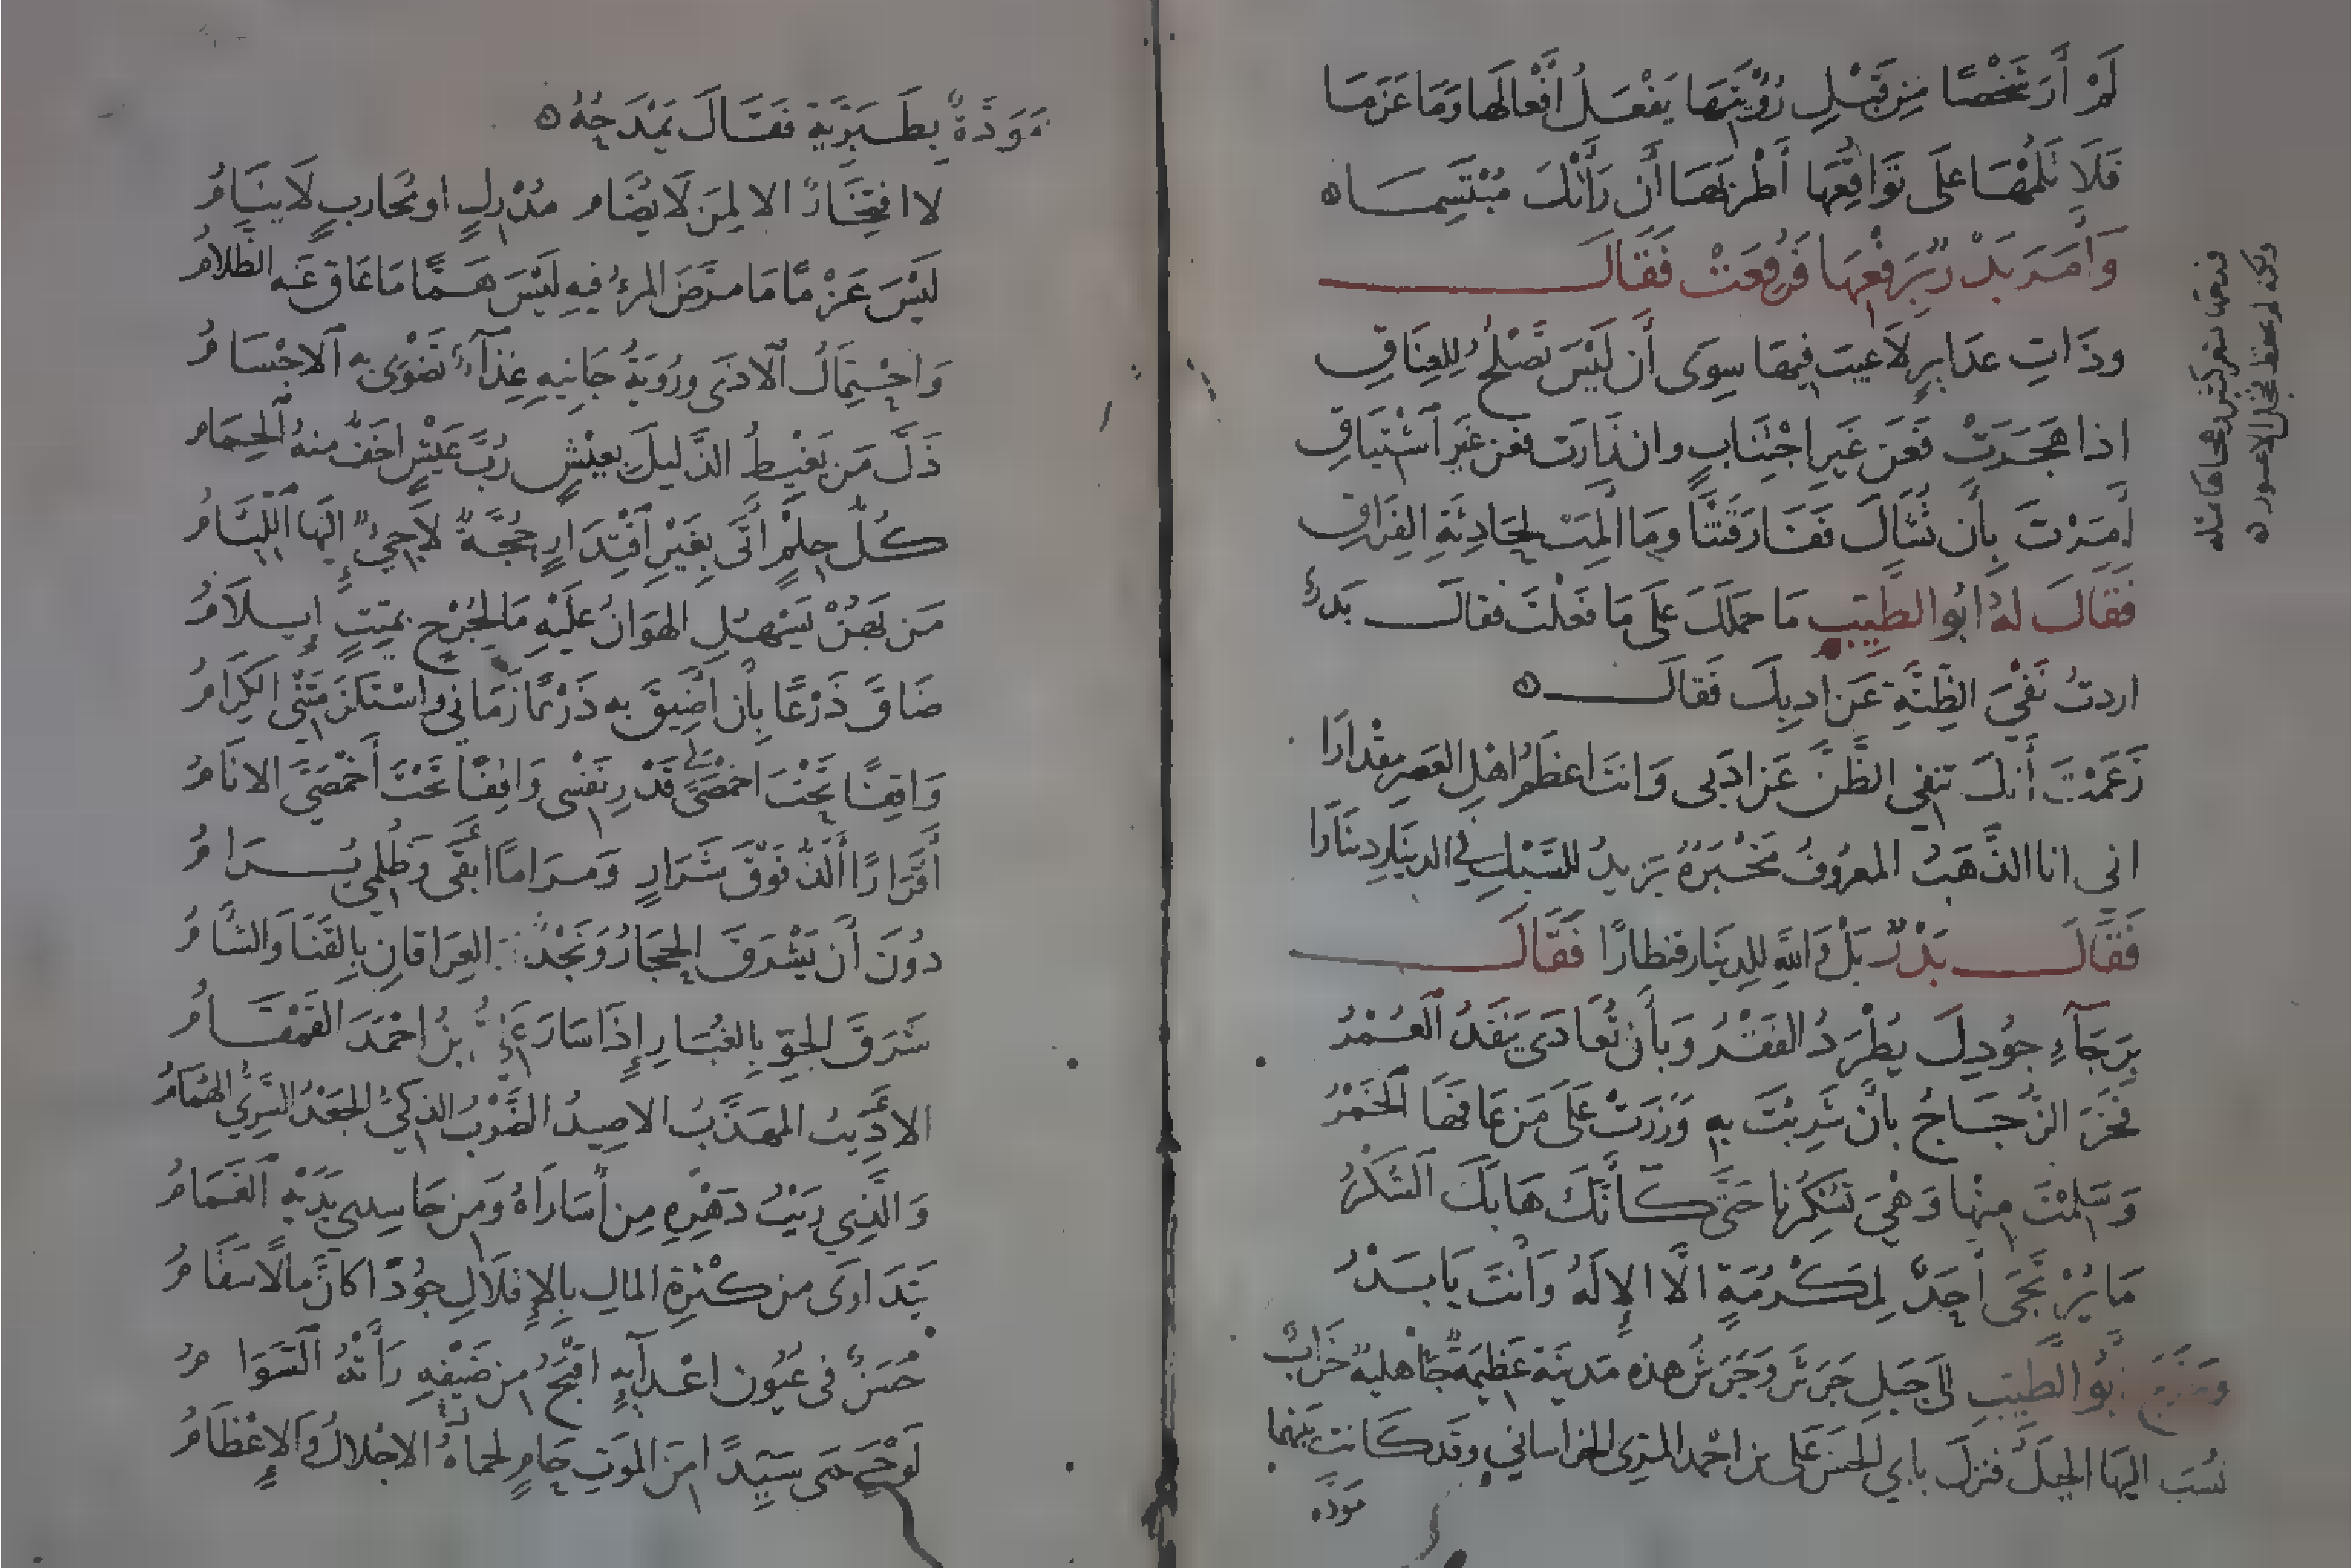 لَمْ أَرَ شَخْصًا مِن قَبْلِ رُؤْيَتِهَا يَفْعَلُ أَفْعالَها وَمَا عَزَمَا
فَلَا تَلُمْهَا عَلَى تَوَاقُعِهَا أَطْرَبَهَا أَن رَأَتْكَ مُبْتَسِمَا ه
وَأَمَرَ بَدْرٌ بِرَفْعِهَا فَرُفِعَتْ فَقَالَ
وذَاتِ غدَايرٍ لَا عيبَ فِيهَا سِوَى أَن لَيْسَ تَصْلُحُ لِلعِنَاقِ
اذا هَجَرَتْ فَعَن غَيرِ اجْتِنَابٍ وان زَارَت فعن غَيرِ ٱشْتِيَاقِ
أَمَرْتَ بِأَن تُشَالَ فَفَارَقَتْنَا وَمَا أَلِمَتْ لِحَادِثَةِ الفِرَاقِ
فَقَالَ لهُ ابُو الطَّيِّبِ مَا حَمَلَكَ عَلَى مَا فَعَلْتَ فقالَ بَدرٌ
اردتُ نَفْيَ الظِّنَّةِ عَن ادبِكَ فَقالَ ه
زَعَمْتَ أَنكَ تنفي الظَّنَّ عَن ادَبى وَانتَ اعظَمُ اهلِ العَصرِ مِقْدَارَا
انى انا الذَّهَبُ المعرُوفُ مَخْبَرُهُ يَزيدُ للسَّبْكِ في الدينَارِ دينَارَا
فَقَالَ بَدْرٌ بَلْ وَاللهِ للدِينَارِ قنطارًا فَقَالَ
بِرَجَآءِ جُودِكَ يُطْرَدُ الفَقْرُ وَبأَن تُعَادَى يَنفَدُ ٱلعُمْرُ
فَخَرَ الزُّجَاجُ بأَن شَرِبْتَ بهِ وَزَرَتْ عَلَى مَن عَافَهَا ٱلخَمْرُ
وَسَلِمْتَ مِنْهَا وَهْىَ تُسْكِرُنا حَتَّى كَأَنَّكَ هَابَكَ ٱلسُّكْرُ
مَا يُرْتَجَى أَحَدٌ لِمَكْرُمَةٍ الَّا الإِلَهُ وَأَنتَ يَا بَدْرُ
وَخَرَجَ ابُو الطَّيِّبِ الىَ جَبَلِ جَرَشَ وَجَرَشُ هذه مَدينَة عَظِيمَةٌ جَاهليةٌ خَرَابٌ
نُسبَ اليهَا الجبَلُ فنزلَ بابي الحسَن عَلى بن احْمد المرّى الخراساني وقد كَانت بَينهما
مَوَدَّه
فدحها بشعر كثير وهجاها بمثله
ولكنه لم يحفظ فخجل الاعور ه
مَوَدَّةٌ بِطَبَرِيَّةَ فَقَالَ يَمْدَحُهُ ه
لا افتِخَارٌ الا لِمَن لَا يُضَام مُدْرِكٍ او مُحَارِبٍ لَا ينَامُ
لَيْسَ عَزْمًا مَا مَرَّضَ المرءُ فِيهِ لَيْسَ هَمًّا مَا عَاقَ عَنه الظَّلامُ
وَاحْتِمَالُ ٱلاذَى ورُؤيَةُ جَانِيهِ غِذَآءٌ تَضْوَى بهِ ٱلاجْسَامُ
ذَلَّ مَن يَغْبِطُ الذَّليلَ بِعيْشٍ رُبَّ عَيْشٍ اخَفُّ منهُ ٱلحِمَامُ
كُلُّ حِلْمٍ أَتَى بِغَيْرِ ٱقْتِدَارٍ حُجَّةٌ لَاجِىءٌ الَيهَا ٱللِّئَامُ
مَن يَهُنْ يَسْهُلِ الهَوَانُ عَلَيْهِ مَا لِجُرْحٍ بمَيّتٍ إِيلَامُ
ضَاقَ ذَرْعًا بِأَن أَضِيقَ بهِ ذَرْعًا زَمَاني واسْتَكرَمَتْنِى الكِرَامُ
وَاقِفًا تَحْتَ اخْمَصَيْ قَدْرِ نَفْسِى وَاقِفًا تَحْتَ أَخْمَصَيَّ الانَامُ
أَقَرَارًا أَلَذُّ فَوْقَ شَرَارٍ وَمَرَامًا ابْغِى وَظُلْمِى يُرَامُ
دُونَ أَن يَشْرَقَ الحجَازُ وَنَجْدٌ والعِرَاقانِ بالقَنَا وَالشَّامُ
شَرَقَ الجَوِّ بِالغُبَارِ إِذَا سَارَ عَلِيُّ بنُ احْمَدَ القَمْقَامُ
الادِّيبُ المهَذَّبُ الاصيَدُ الضَّرْبُ الذكيُّ الجَعْدُ السَّرِيُّ الهُمَامُ
وَالَّذِي رَيْبُ دَهْرِهِ مِن أُسَارَاهُ وَمِن حَاسِدِي يَدَيْهِ ٱلغَمَامُ
يَتَدَاوَى من كَثْرَةِ المَالِ بِالإِقلَالِ جُودًا كانَّ مالًا سَقَامُ
حَسَنٌ فى عُيُون اعْدآئِهِ اقْبَحُ من ضَيْفِهِ رَأَتْهُ ٱلسَّوَامُ
لَوْ حَمَى سَيّدًا منَ الموَتِ حَامٍ لحمَاهُ الاجْلالُ وَالإِعْظَامُ